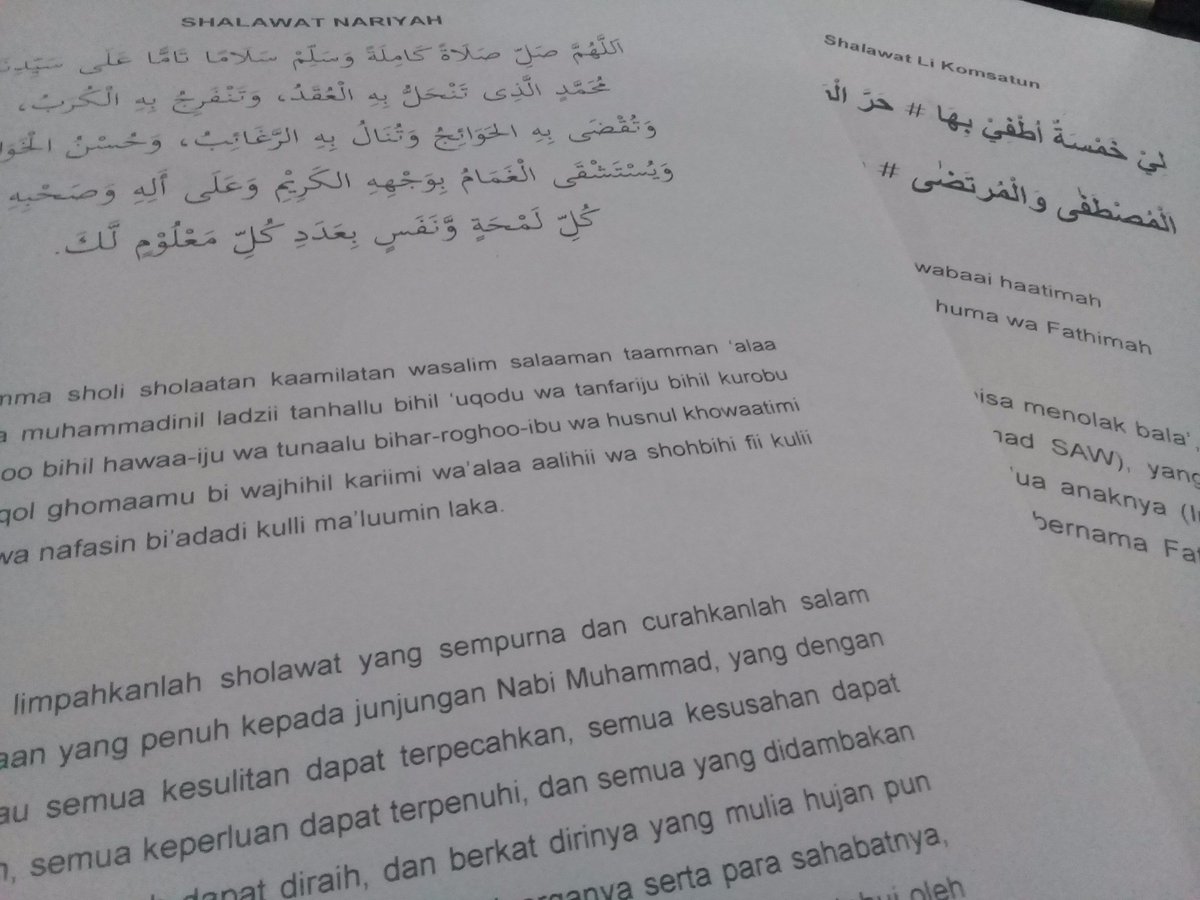 SHALAWAT NARIYAH
اَللّٰهُمَّ صَلِّ صَلَاةً كَامِلَةً وَسَلِّمْ سَلَامًا تَامًّا عَلَى سَيِّدِنَا
مُحَمَّدٍ الَّذِى تَنْحَلُّ بِهِ الْعُقَدُ، وَتَنْفَرِجُ بِهِ الْكُرَبُ،
وَتُقْضَى بِهِ الحَوَائِجُ وَتُنَالُ بِهِ الرَّغَائِبُ، وَحُسْنُ
وَيُسْتَسْقَى الْغَمَامُ بِوَجْهِهِ الكَرِيْمِ وَعَلَى أَلِهِ وَصَحْبِهِ
كُلِّ لَمْحَةٍ وَّنَفَسٍ بِعَدَدِ كُلِّ مَعْلُوْمٍ لَّكَ.
sholi sholaatan kaamilatan wasalim salaaman taamman 'alaa
muhammadinil ladzii tanhallu bihil 'uqodu wa tanfariju bihil kurobu
bihil hawaa-iju wa tunaalu bihar-roghoo-ibu wa husnul khowaatimi
ghomaamu bi wajhihil kariimi wa'alaa aalihii wa shohbihi fii kulii
wa nafasin bi'adadi kulli ma'luumin laka.
limpahkanlah sholawat yang sempurna dan curahkanlah salam
yang penuh kepada junjungan Nabi Muhammad, yang dengan
semua kesulitan dapat terpecahkan, semua kesusahan dapat
semua keperluan dapat terpenuhi, dan semua yang didambakan
dapat diraih, dan berkat dirinya yang mulia hujan pun
serta para sahabatnya,
oleh
Shalawat Li Komsatun
لِيْ خَمْسَةٌ أُطْفِيْ بِهَا # حَرَّ
الْمُصْطَفٰى وَالْمُرْتَضٰى #
wabaai haatimah
huma wa Fathimah
menolak bala',
SAW), yang
anaknya
bernama